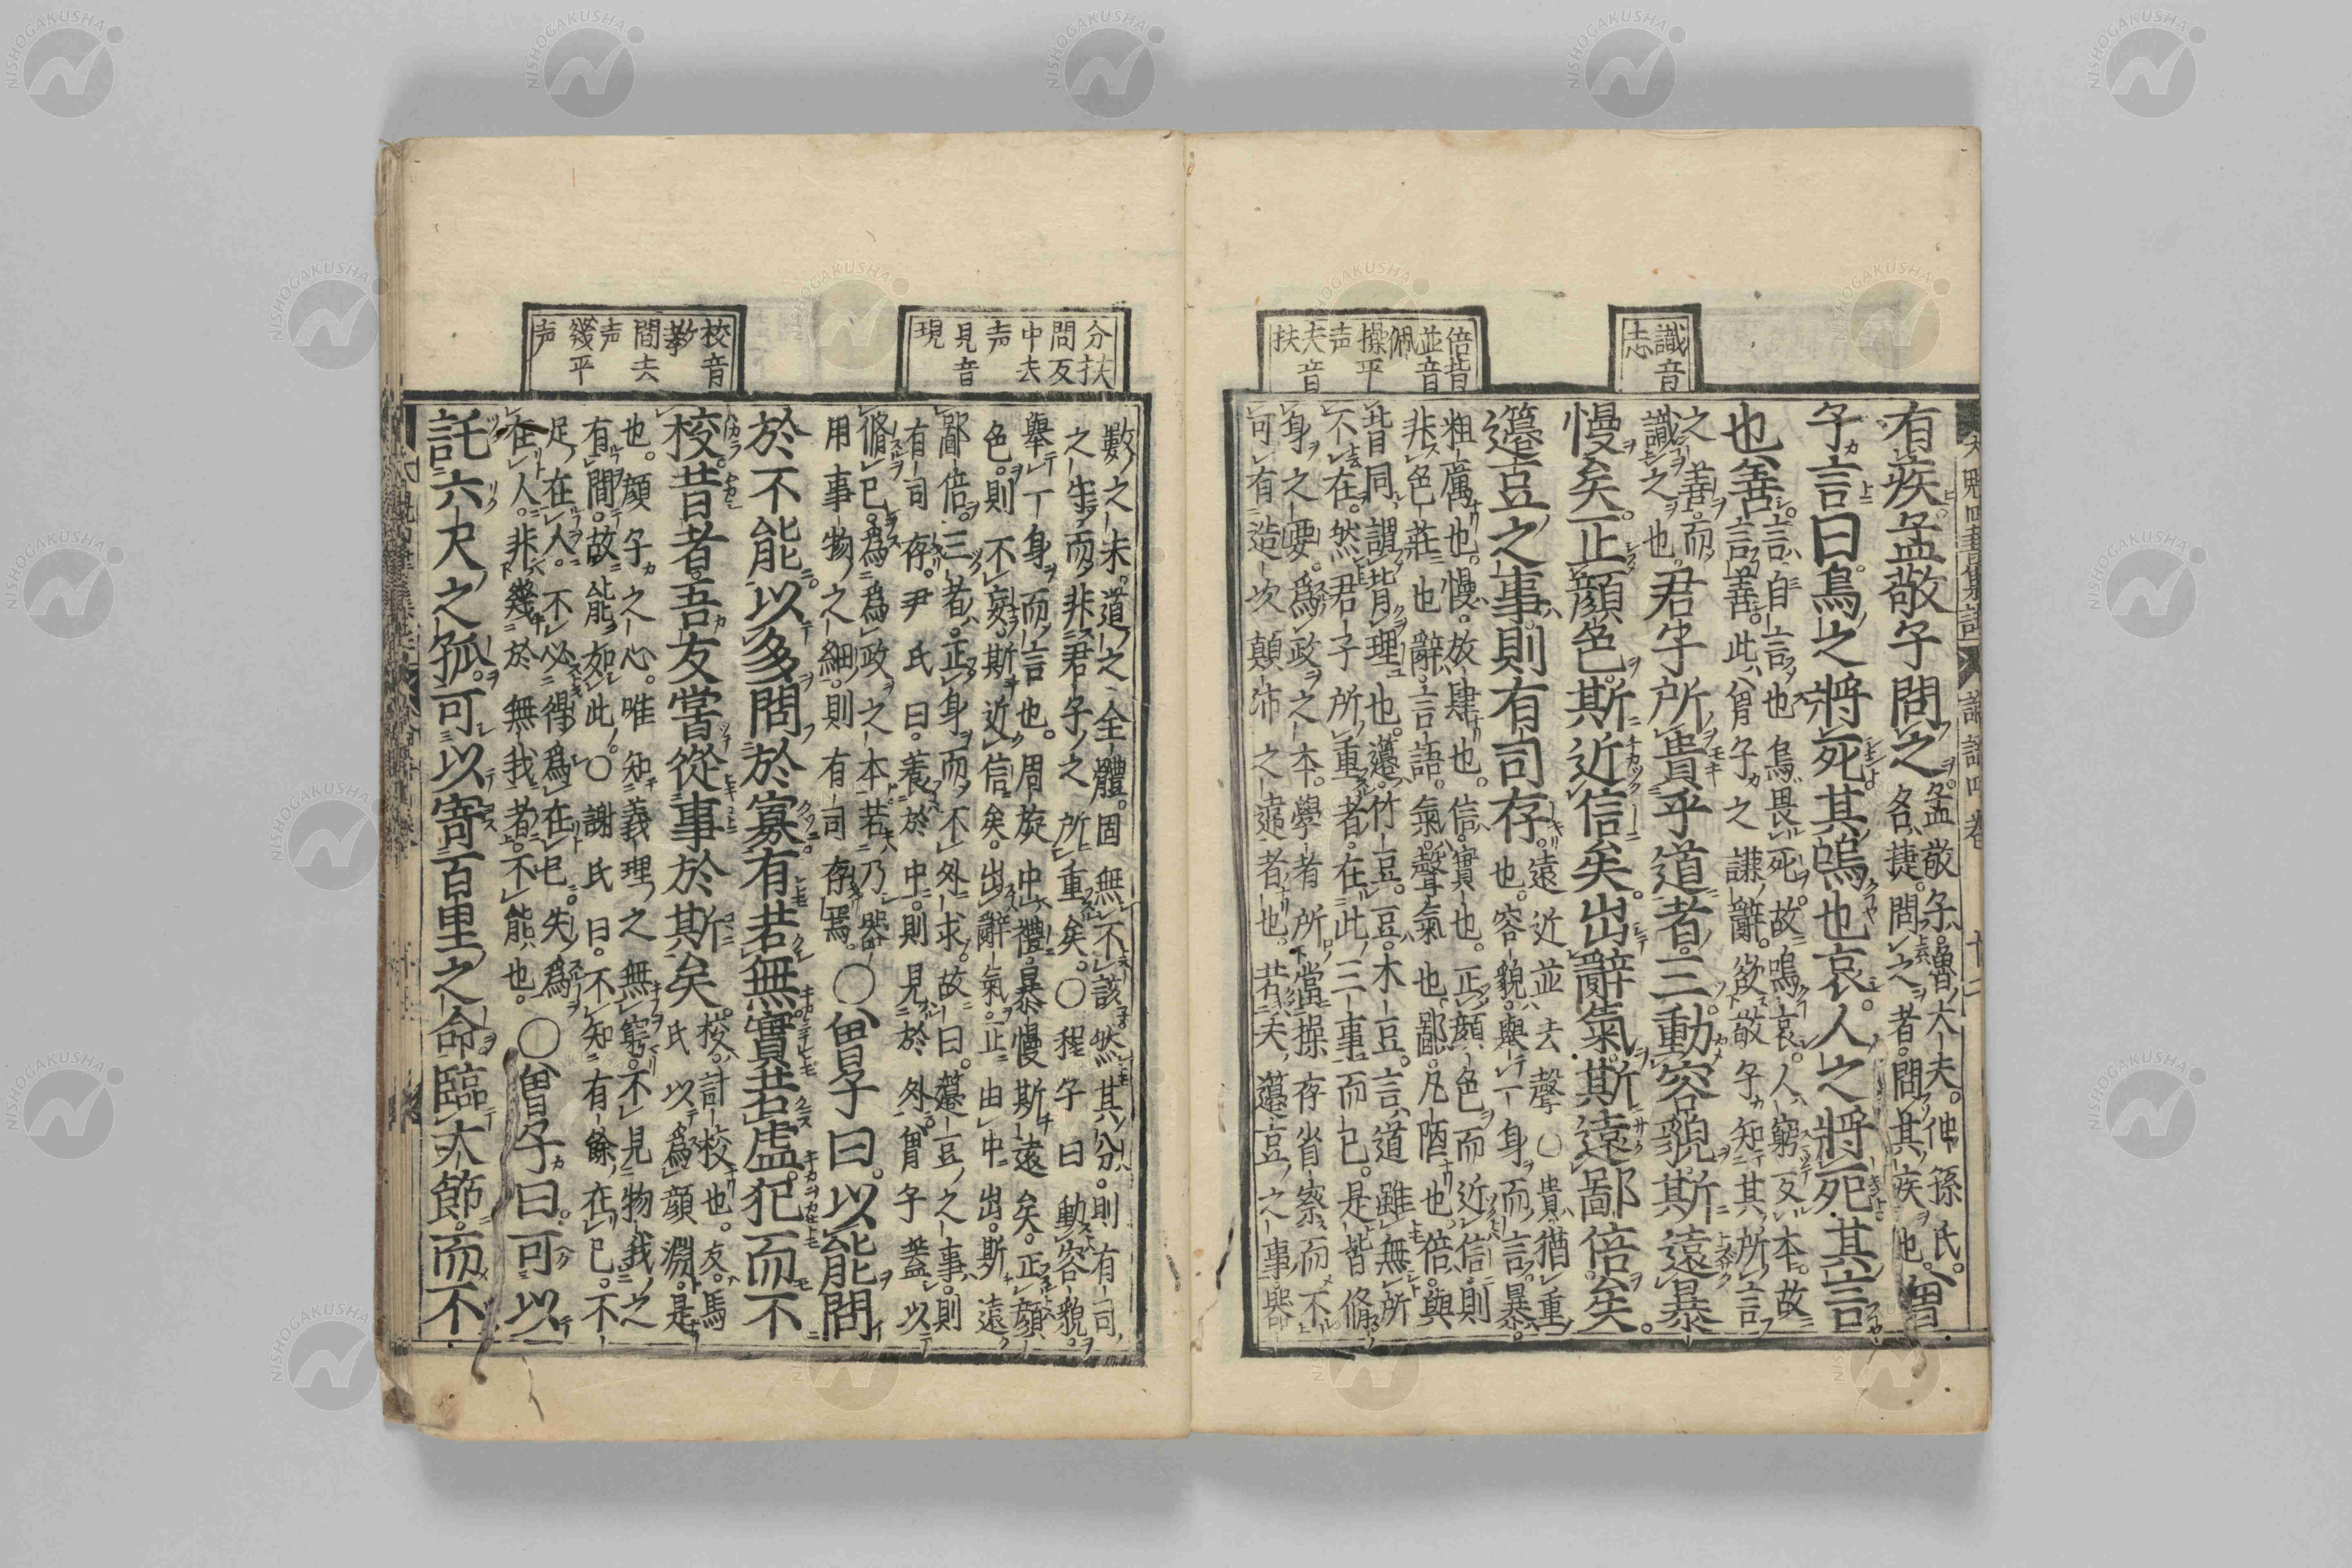 大魁四書集註 論語四卷 十二
識音
志
倍背
並音
佩
操平
声
夫音
扶
有疾孟敬子問之。
孟敬子。魯大夫。仲孫氏。
名捷。問之者。問其疾也。
曽
子言曰。鳥之將死其鳴也哀。人之將死其言
也善。
言自言也鳥畏死。故鳴哀。人窮反本。故
言善。此曽子之謙辭。欲敬子知其所言
之善。而
識之也。
君子所貴乎道者。三。動容貌斯遠暴
慢矣。正顔色。斯近信矣。出辭氣。斯遠鄙倍矣。
籩豆之事。則有司存。
遠近並去聲○貴猶重
也。容貌。舉一身而言。暴。
粗厲也。慢。放肆也。信。實也。正顔色而近信。則
非色莊也辭。言語。氣。聲氣也。鄙。凡陋也。倍。與
背同。謂背理也。籩。竹豆。豆。木豆。言道雖無所
不在。然君子所重者。在此三事而已。是皆脩
身之要。爲政之本。學者所當操存省察而不
可有造次顛沛之違者也。若夫籩豆之事。器
分扶
問反
中去
声
見音
現
校音
教
間去
声
幾平
声
數之末。道之全體。固無不該然其分。則有司
之守。而非君子之所重矣。○程子曰動容貌。
舉一身而言也。周旋中禮。暴慢斯遠矣。正顔
色。則不妄。斯近信矣。出辭氣。正由中出。斯遠
鄙倍。三者。正身而不外求。故曰。籩豆之事。則
有司存。尹氏曰。養於中。則見於外。曽子蓋以
脩己。爲爲政之本。若乃器
用事物之細。則有司存焉。
○曽子曰。以能問
於不能。以多問於寡有若無實若虚。犯而不
校。昔者。吾友甞從事於斯矣。
校。計校也。友。馬
氏以爲顔淵。是
也。顔子之心。唯知義理之無窮。不見物我之
有間。故能如此。○謝氏曰。不知有餘在己。不
足在人。不必得爲在己。失爲
在人。非幾於無我者。不能也。
○曽子曰。可以
託六尺之孤。可以寄百里之命臨大節。而不
NISHOGAKUSHA